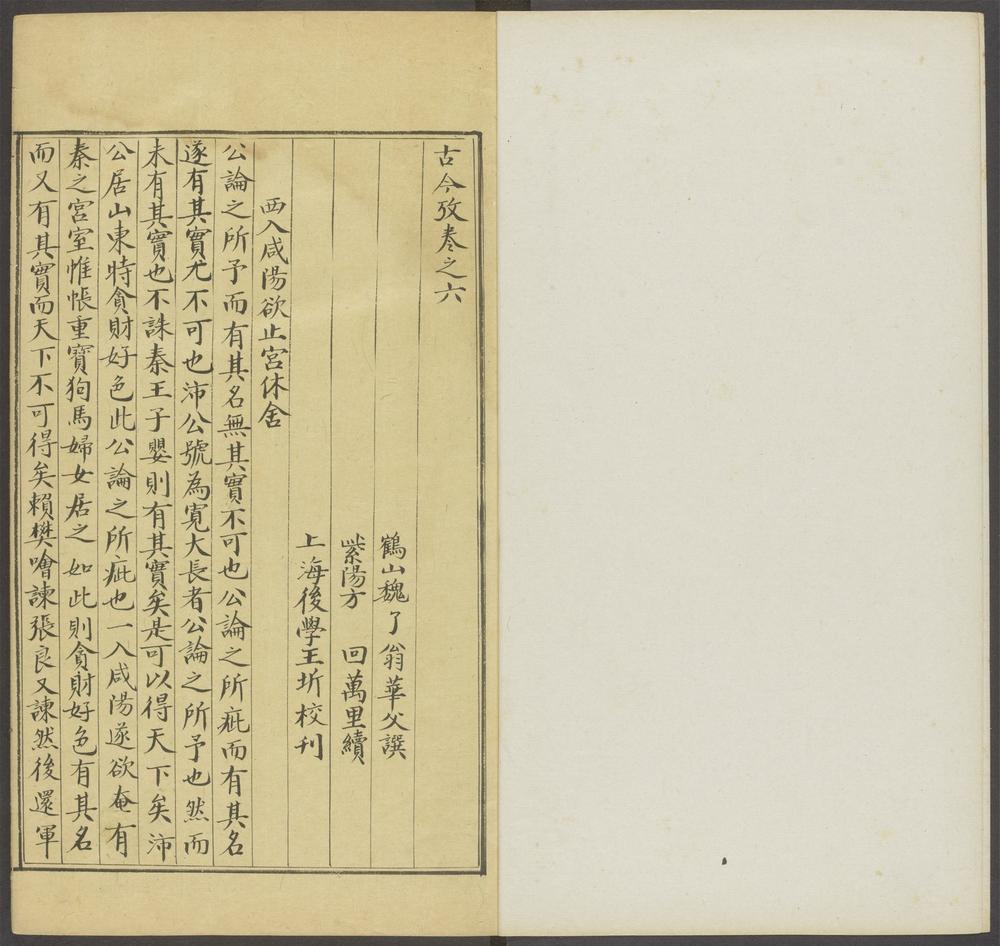 古今攷卷之六
鶴山魏了翁華父譔
紫陽方　回萬里續
上海後學王圻校刊
西入咸陽欲止宮休舍
公論之所予而有其名無其實不可也公論之所疵而有其名
遂有其實尤不可也沛公號為寬大長者公論之所予也然而
未有其實也不誅秦王子嬰則有其實矣是可以得天下矣沛
公居山東時貪財好色此公論之所疵也一入咸陽遂欲奄有
秦之宮室帷帳重寶狗馬婦女居之　如此則貪財好色有其名
而又有其實而天下不可得矣賴樊噲諫張良又諫然後還軍